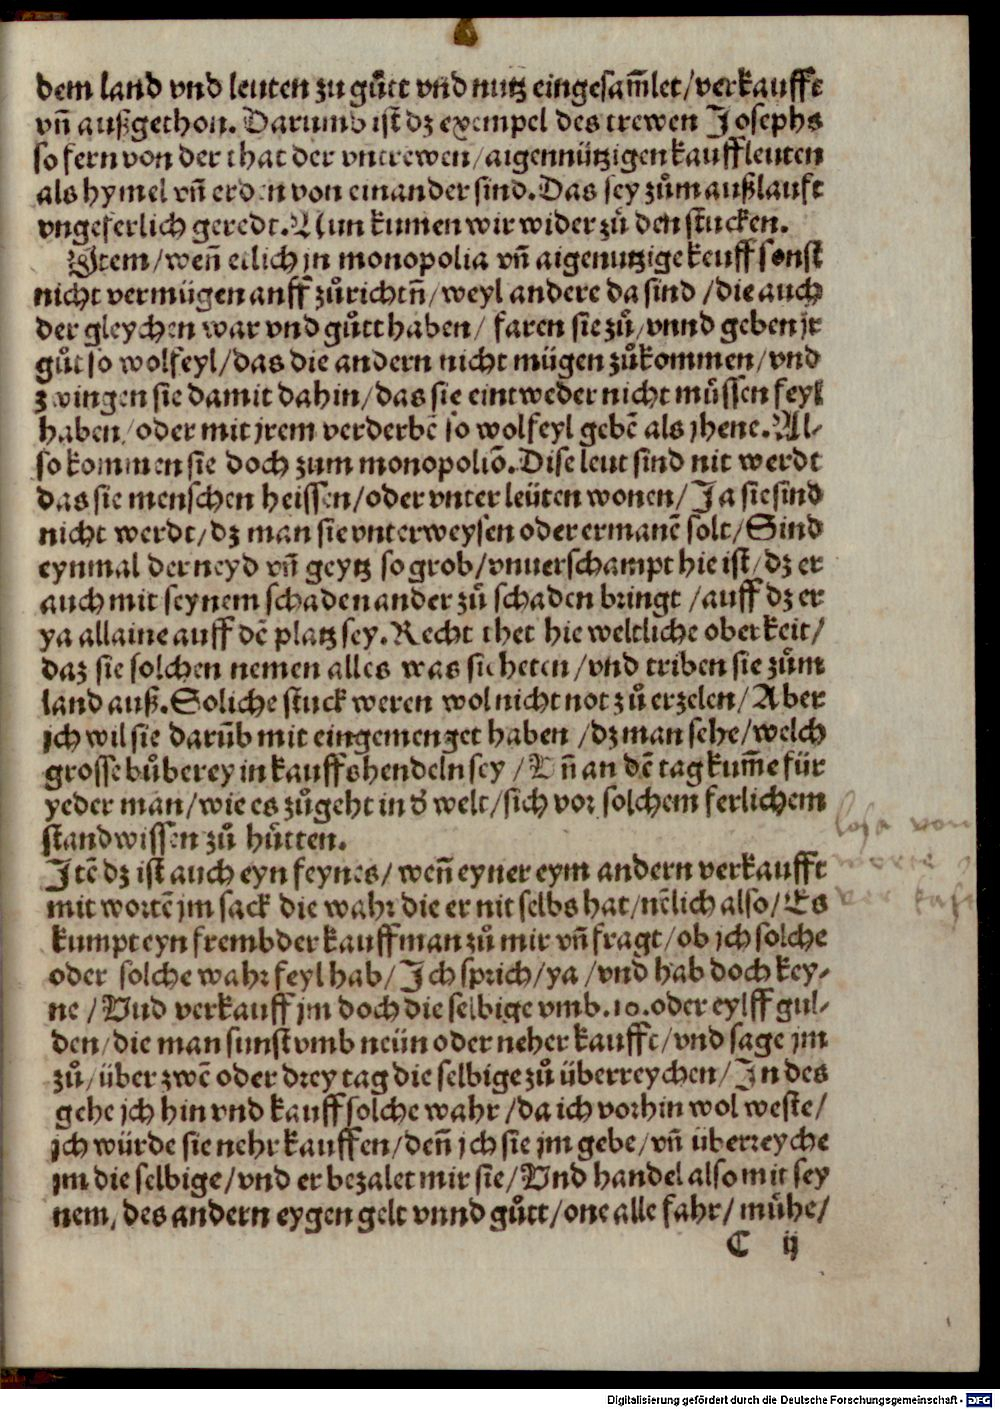 dem land vnd leuten zu gůtt vnd nutz eingesam̄let/verkaufft
vn̄ außgethon. Darumb ist dz exempel des trewen Josephs
so fern von der that der vntrewen/aigennützigen kauffleuten
als hymel vn̄ erden von einander sind. Das sey zům außlaufft
vngeferlich geredt. Nun kumen wir wider zů den stucken.
Item/wen̄ etlich jn monopolia vn̄ aigenutzige keuff sonst
nicht vermügen anff zůrichtn̄/weyl andere da sind/die auch
der gleychen war vnd gůtt haben/ faren sie zů/vnnd geben jr
gůt so wolfeyl/das die andern nicht mügen zůkommen/vnd
zwingen sie damit dahin/das sie eintweder nicht můssen feyl
haben/oder mit jrem verderbē so wolfeyl gebē als jhene. Al-
so kommen sie doch zum monopoliō. Dise leut sind nit werdt
das sie menschen heissen/oder vnter leüten wonen/Ja sie sind
nicht werdt/dz man sie vnterweysen oder ermanē solt/Sind
eynmal der neyd vn̄ geytz so grob/vnuerschampt hie ist/dz er
auch mit seynem schaden ander zů schaden bringt/auff dz er
ya allaine auff dē platz sey. Recht thet hie weltliche oberkeit/
daz sie solchen nemen alles was sie heten/vnd triben sie zům
land auß. Soliche stuck weren wol nicht not zů erzelen/Aber
jch wil sie darūb mit eingemenget haben/dz man sehe/welch
grosse bůberey in kauffshendeln sey/Vn̄ an dē tag kum̄e für
yeder man/wie es zůgeht in d̓ welt/sich vor solchem ferlichem
stand wissen zů hůtten.
Itē dz ist auch eyn feynes/wen̄ eyner eym andern verkaufft
mit wortē jm sack die wahr die er nit selbs hat/nēlich also/Es
kumpt eyn frembder kauffman zů mir vn̄ fragt/ob jch solche
oder solche wahr feyl hab/Ich sprich/ya/vnd hab doch key-
ne/Vnd verkauff jm doch die selbige vmb .10. oder eylff gul-
den/die man sunst vmb neün oder neher kaufft/vnd sage jm
zů/über zwē oder drey tag die selbige zů überreychen/In des
gehe jch hin vnd kauff solche wahr/da ich vorhin wol weste/
jch würde sie nehr kauffen/den̄ jch sie jm gebe/vn̄ überreyche
jm die selbige/vnd er bezalet mir sie/Vnd handel also mit sey
nem/des andern eygen gelt vnnd gůtt/one alle fahr/mühe/
C ij
von
worte
ver kaff
Digitalisierung gefördert durch die Deutsche Forschungsgemeinschaft - DFG